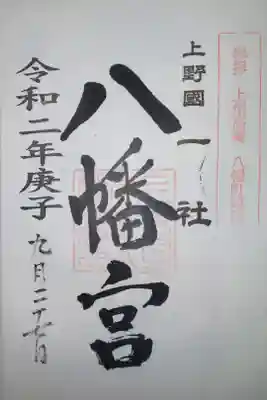 上野國一社
八幡宮
令和二年庚子
九月二十七日